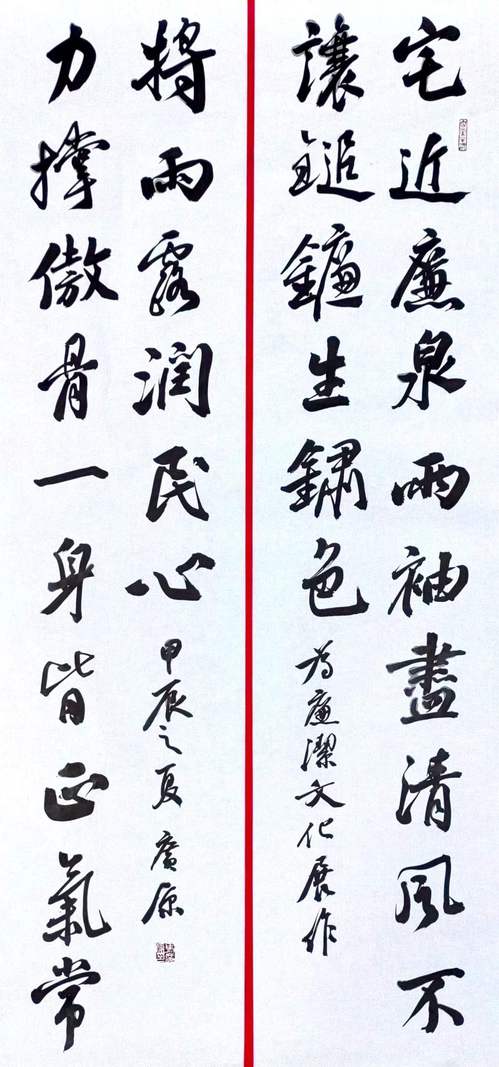 宅近廉泉兩袖盡清風不
讓鎚鐮生鏽色
为廉潔文化展作
力撑傲骨一身皆正氣常
將雨露潤民心
甲辰之夏 廣原